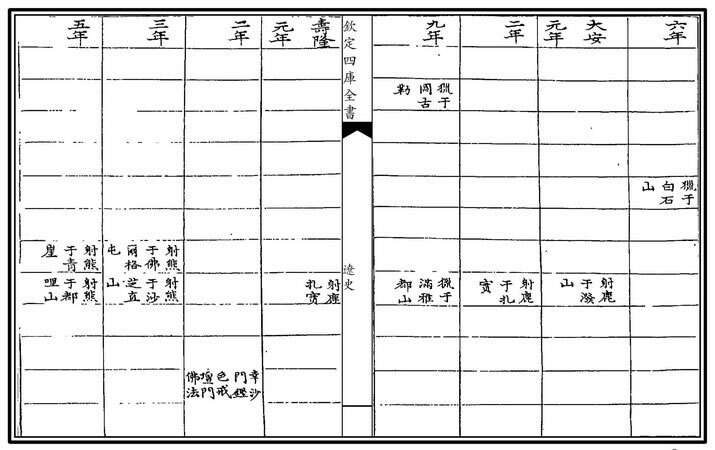 六年
獵于
白石
山
大安
元年
射鹿
于潑
山
二年
射鹿
于扎
寳
九年
獵于
岡古
勒
獵于
滿雅
都山
欽定四庫全書
遼史
壽隆
元年
射鹿
扎寳
二年
幸沙
門
色戒
壇門
佛法
三年
射熊
于佛
爾格
屯
射熊
于沙
芝直
山
五年
射熊
于青
崖
射熊
于都
哩山